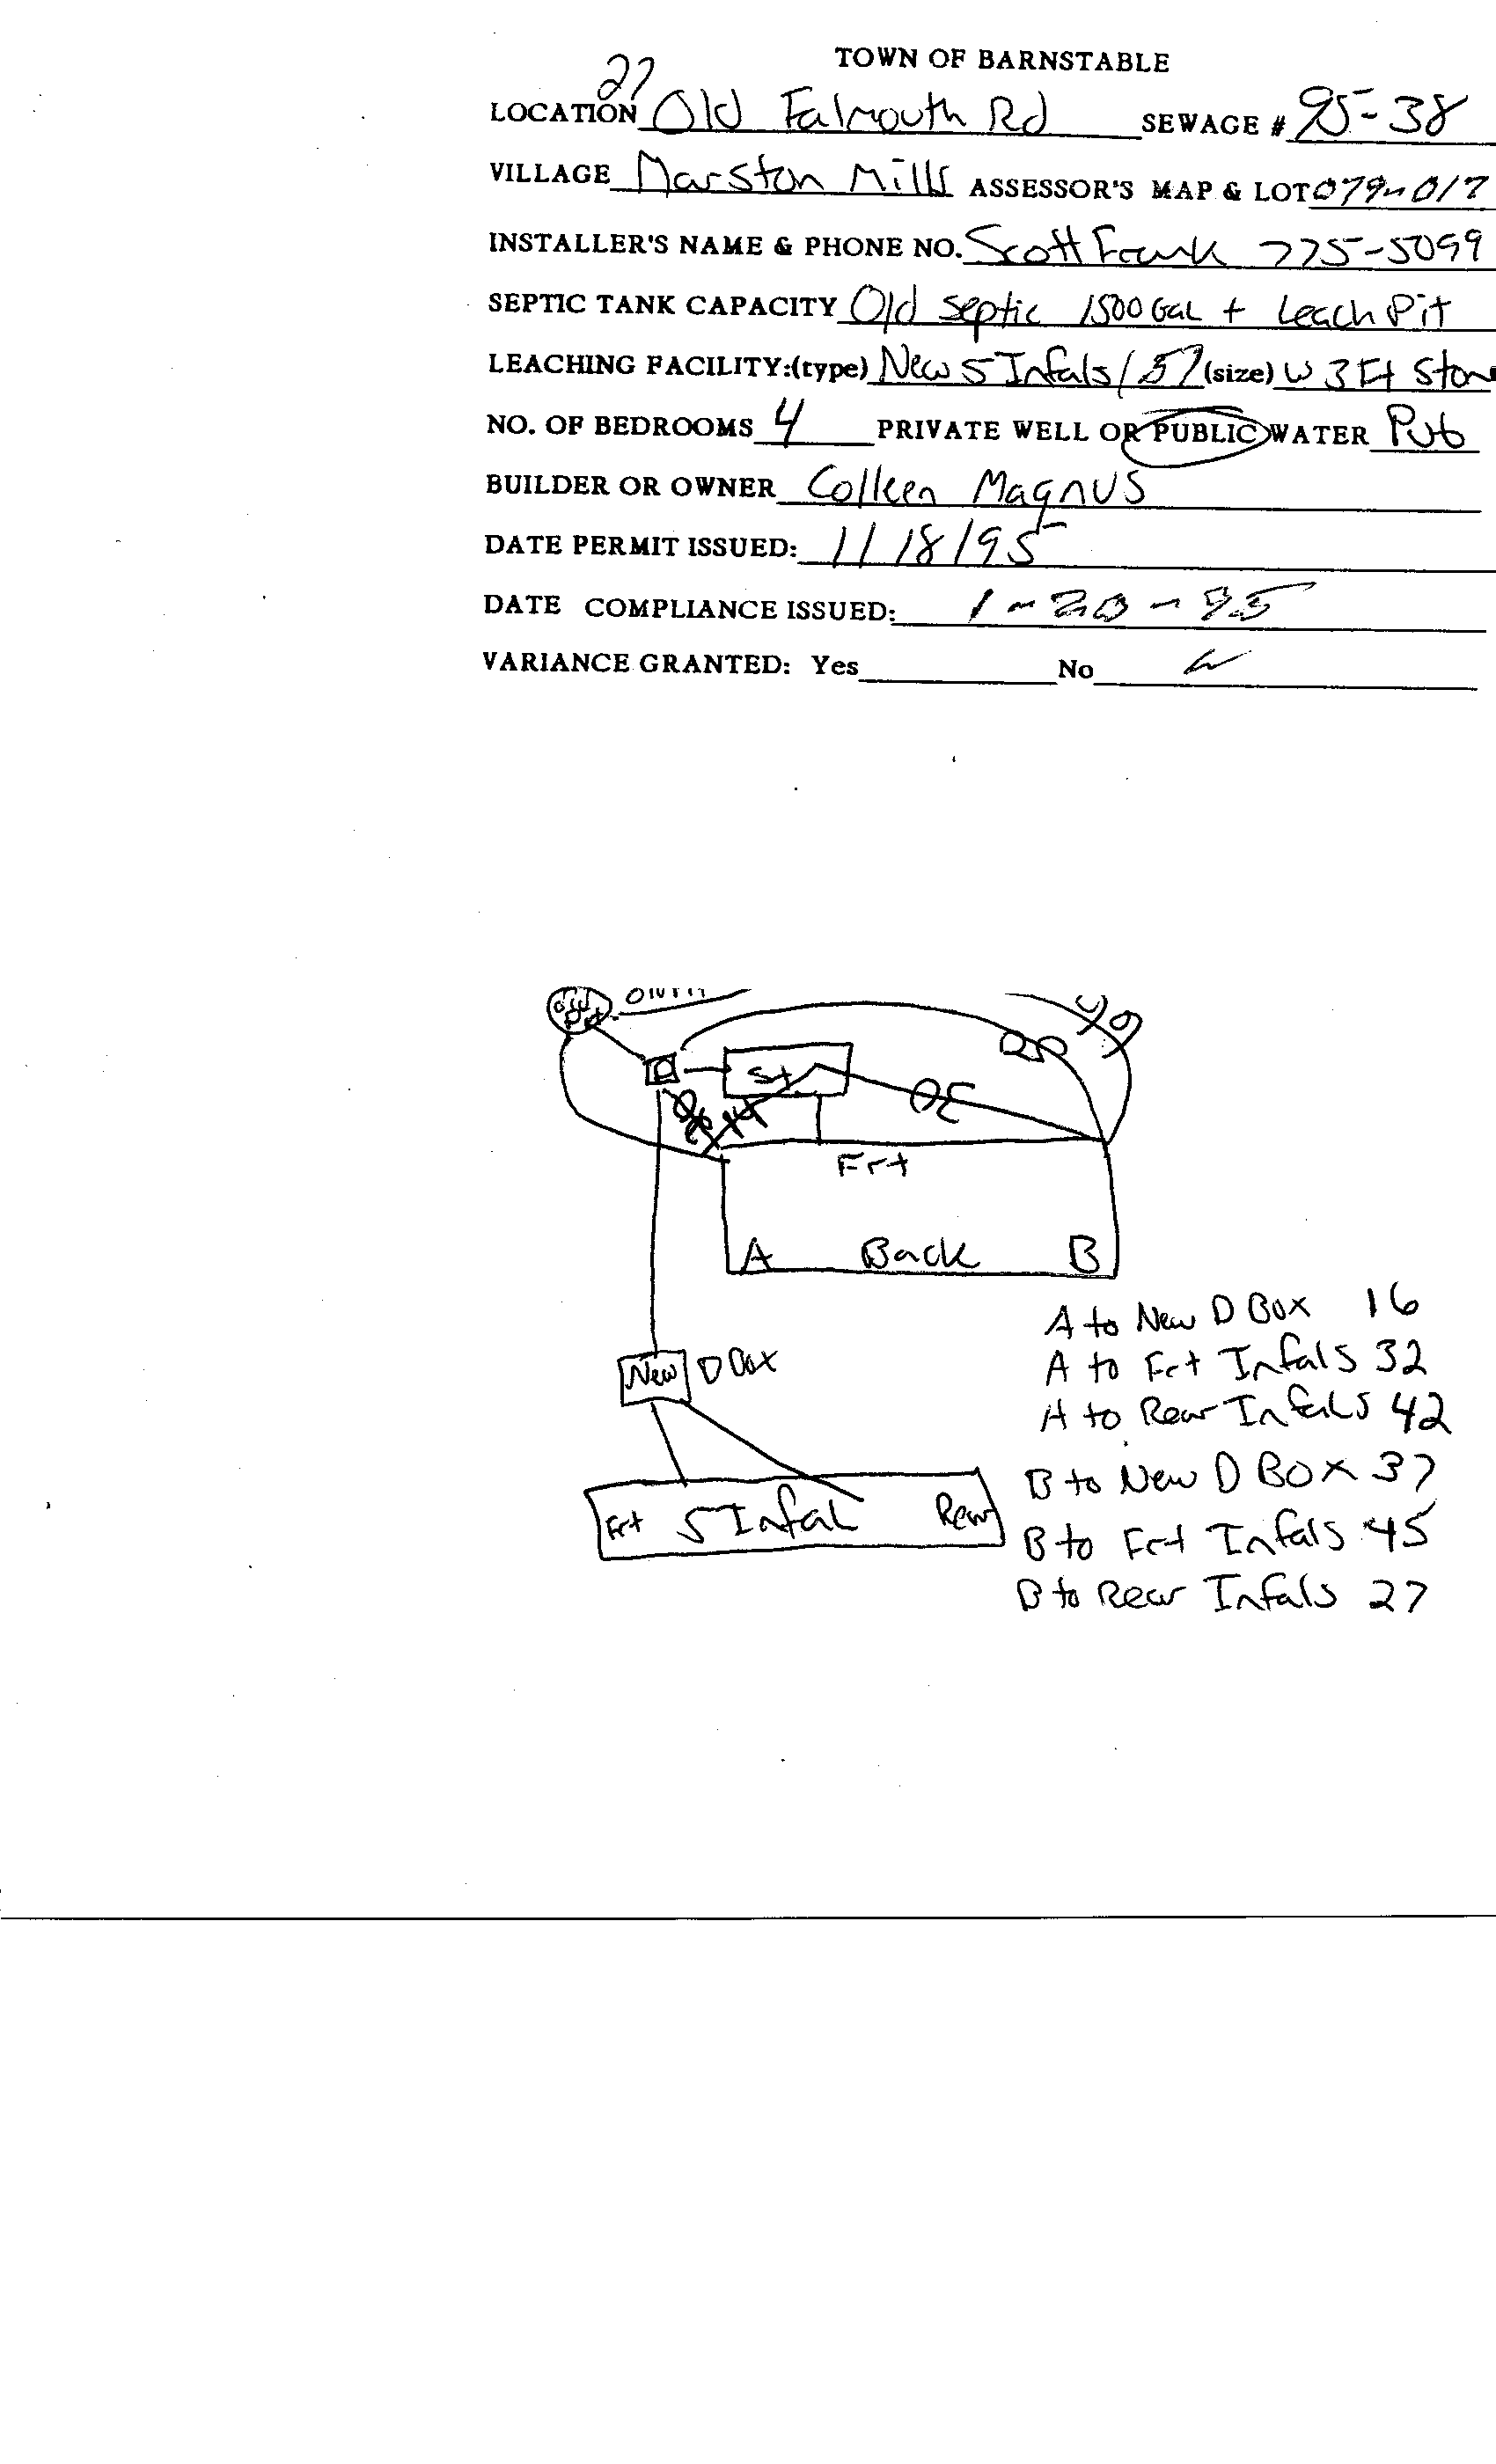 TOWN OF BARNSTABLE
27
LOCATION Old Falmouth Rd SEWAGE # 95-38
VILLAGE Marston Mills ASSESSOR'S MAP & LOT 079-017
INSTALLER'S NAME & PHONE NO. Scott Frank 775-5099
SEPTIC TANK CAPACITY Old Septic 1500 Gal + Leach Pit
LEACHING FACILITY:(type) New 5 Infals / (size) W 3 Ft Stone
NO. OF BEDROOMS 4 PRIVATE WELL OR PUBLIC WATER Pub
BUILDER OR OWNER Colleen Magnus
DATE PERMIT ISSUED: 1/18/95
DATE COMPLIANCE ISSUED: 1-20-95
VARIANCE GRANTED: Yes No
Old Pit
49
D
St
30
Frt
A Back B
New D Box
Frt 5 Infal Rear
A to New D Box 16
A to Frt Infals 32
A to Rear Infals 42
B to New D Box 37
B to Frt Infals 45
B to Rear Infals 27